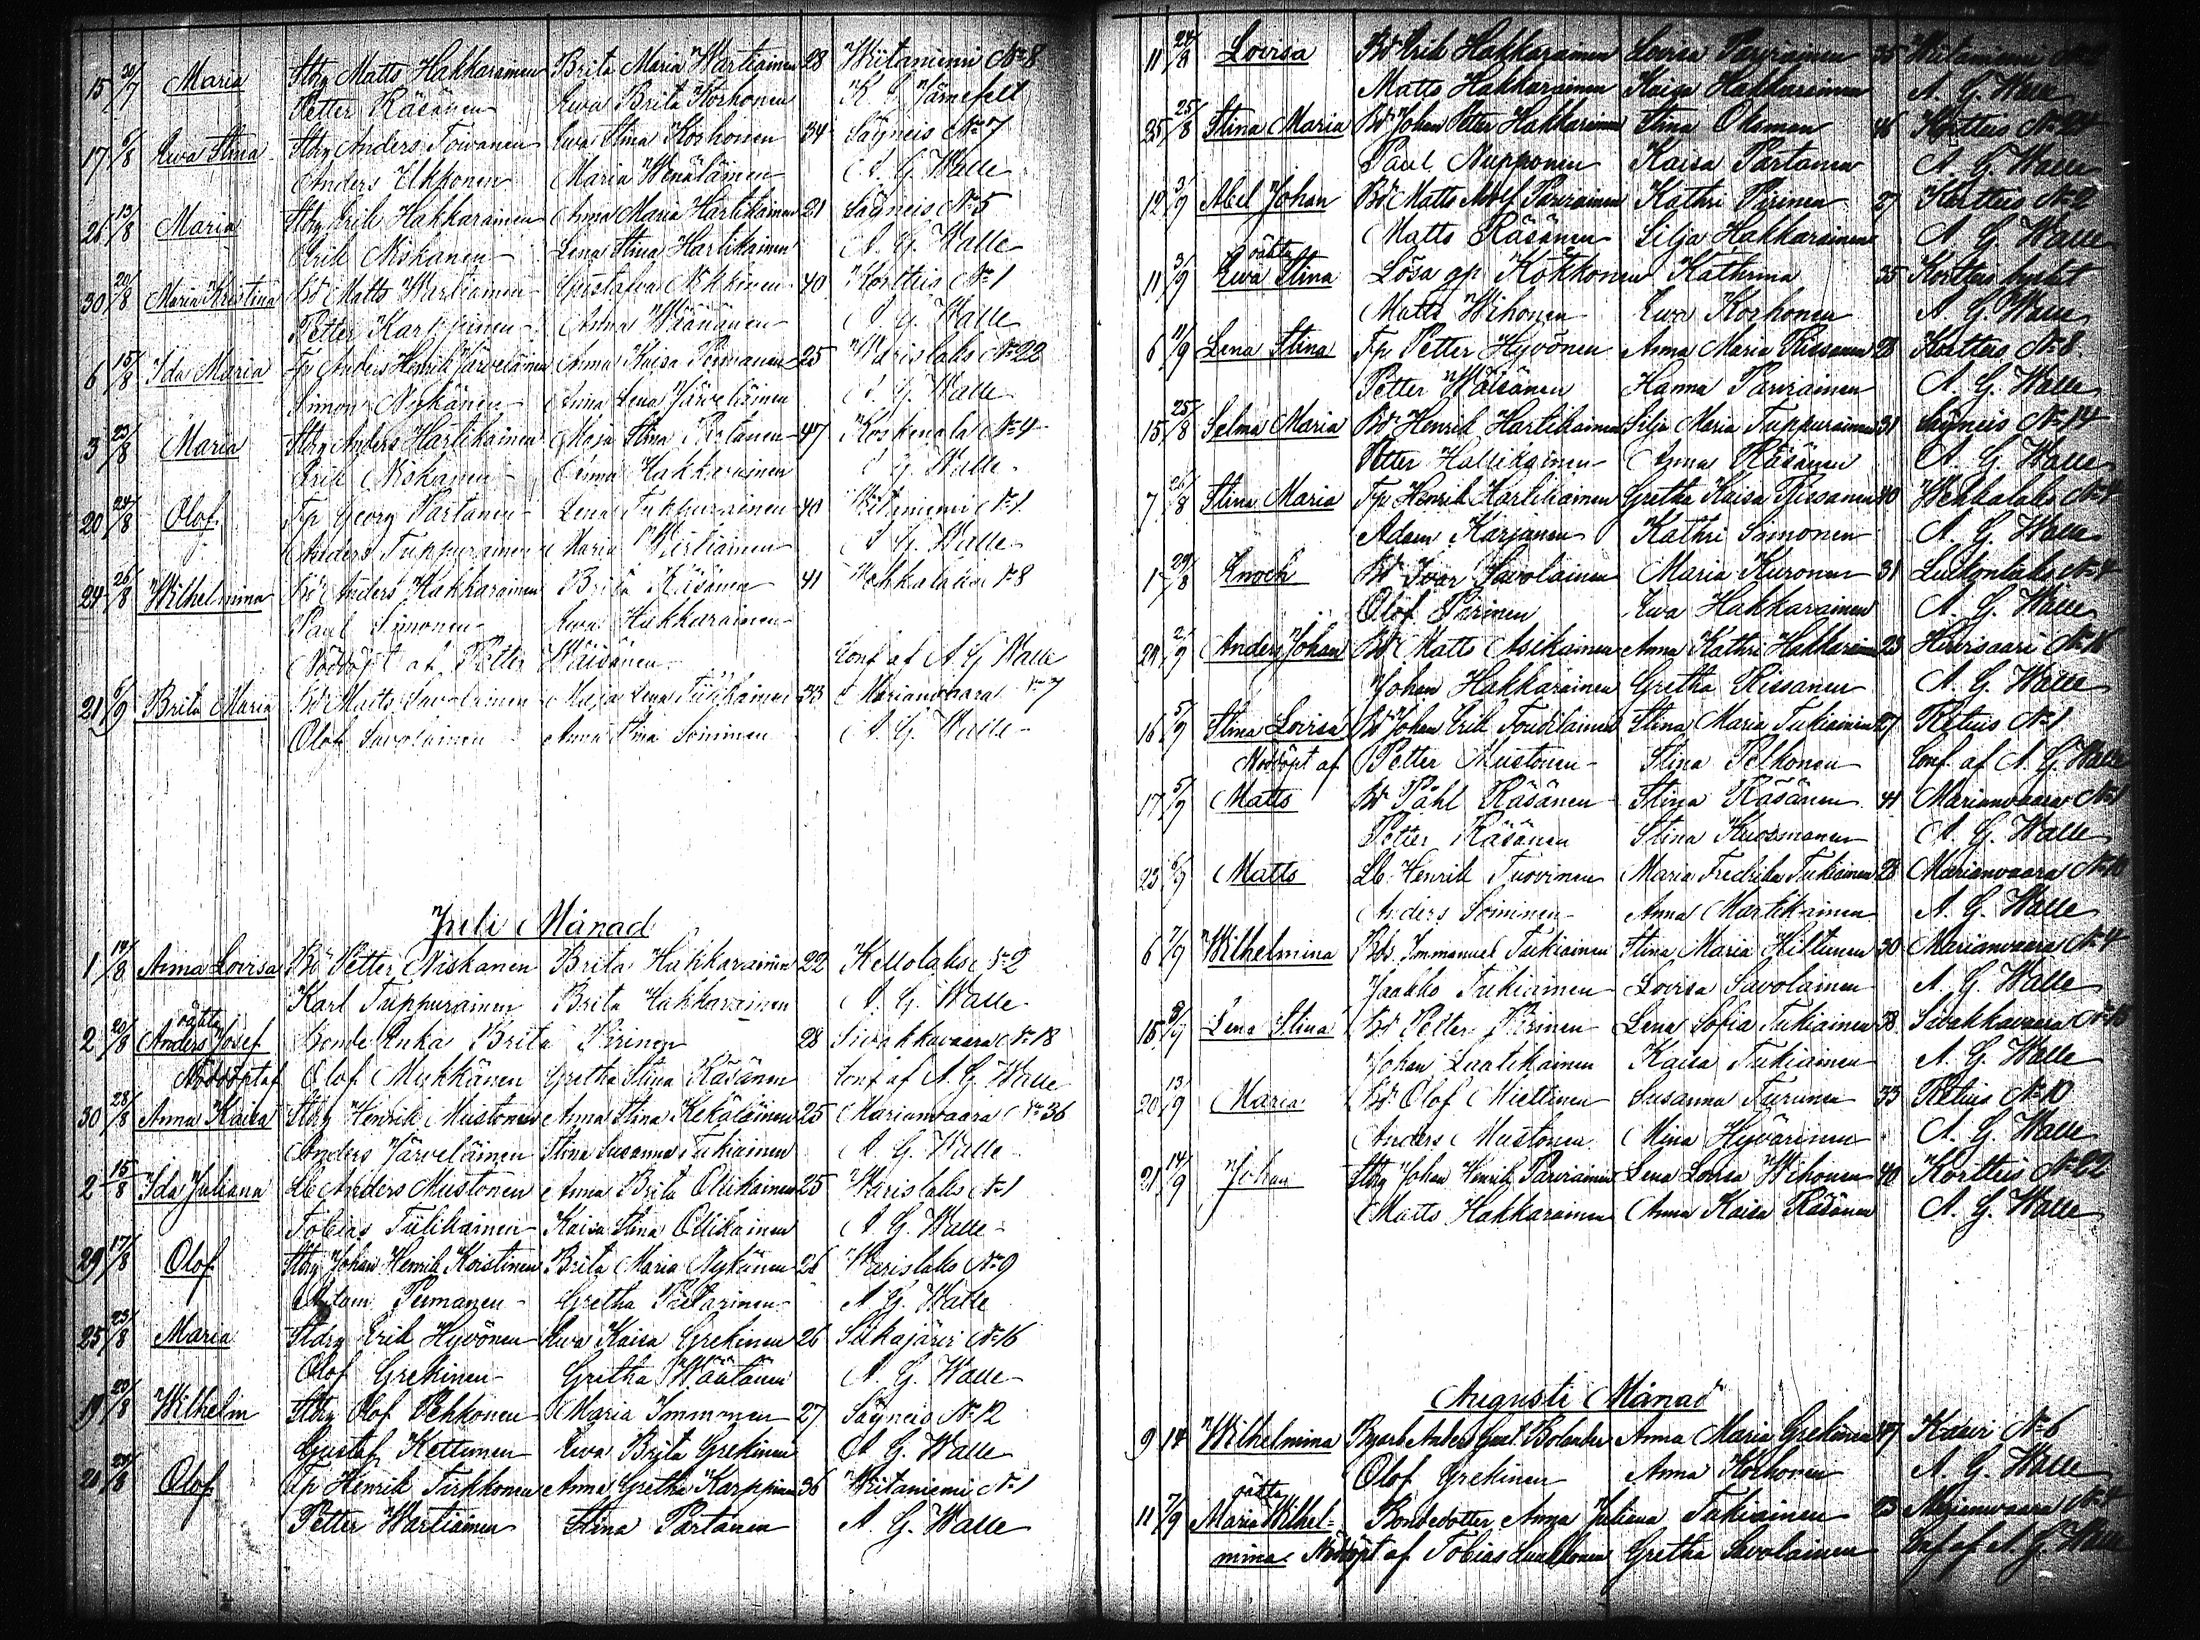 15 30/7 Maria Stbg Matts Hakkarainen Brita Maria Wartiainen 28 Wiitaniemi No 8
Petter Räsänen Ewa Brita Korhonen K. Järnefelt
17 6/8 Ewa Stina Stbg Anders Toivanen Ewa Stina Korhonen 34 Säyneis No 7
Anders Ukkonen Maria Wenäläinen A. G. Walle
26 13/8 Maria Stbg Erik Hakkarainen Anna Maria Hartikainen 21 Säyneis No 5
Erik Niskanen Lena Stina Hartikainen A. G. Walle
30 20/8 Maria Kristina Bd Matts Wartiainen Gustafva 40 Kortteis No 1
Petter Karppinen Anna Wäänänen A. G. Walle
6 15/8 Ida Maria Tp Anders Henrik Järveläinen Anna Kaisa 25 Warislaks No 22
Simon Nykänen Anna Lena Järveläinen A. G. Walle
3 23/8 Maria Stbg Anders Hartikainen Maja Stina Partanen 47 Koskenala No 4
Erik Niskanen Anna Hakkarainen A. G. Walle
20 24/8 Olof Tp Georg Partanen Lena Tuppurainen 40 Wiitaniemi No 1
Anders Tuppurainen Maria Wartiainen A. G. Walle
24 26/8 Wilhelmina Bd Anders Hakkarainen Brita Räsänen 41 Wehkalaks No 8
Paul Simonen Ewa Hakkarainen
Nöddöpt af Petter Wäisänen Conf af A. G. Walle
21 6/9 Brita Maria Bd Matts Savolainen Maja Lena Tiilikainen 33 Marianvaara No 7
Olof Savolainen Anna Stina Soininen A. G. Walle
Juli Månad
1 19/8 Anna Lovisa Bd Petter Niskanen Brita Hakkarainen 22 Kellolaks No 2
Karl Tuppurainen Brita Hakkarainen A. G. Walle
oäkta
2 20/8 Anders Josef Bonde Enka Brita Pirinen 28 Sivakkavaara No 18
Nöddöpt af Olof Mykkänen Gretha Stina Räsänen Conf af A. G. Walle
30 28/8 Anna Kaisa Stbg Henrik Mustonen Anna Stina Kekäläinen 25 Marianvaara No 36
Anders Järveläinen Stina Susanna Tukiainen A. G. Walle
2 15/8 Ida Juliana Lb Anders Mustonen Anna Brita Ollikainen 25 Warislaks No 1
Tobias Tiilikainen Kaisa Stina Ollikainen A. G. Walle
29 17/8 Olof Stbg Johan Henrik Koistinen Brita Maria Nykänen 26 Warislaks No 9
Adam Piiranen Gretha Pitkarinen A. G. Walle
25 23/8 Maria Stbg Erik Hyvönen Ewa Kaisa Grekinen 26 Siikajärvi No 16
Olof Grekinen Gretha Wäätänen A. G. Walle
19 23/8 Wilhelm Stbg Olof Pehkonen Maria Immonen 27 Säyneis No 12
Gustaf Kettunen Ewa Brita Grekinen A. G. Walle
28 24/8 Olof Tp Henrik Turkkonen Anna Gretha Karppinen 36 Wiitaniemi No 1
Petter Wartiainen Stina Partanen A. G. Walle
11 24/8 Lovisa Bd Erik Hakkarainen Lovisa Parviainen 35 Wiitaniemi
Matts Hakkarainen Kaisa Hakkarainen A. G. Walle
25 25/8 Stina Maria Bd Johan Petter Hakkarainen Stina Oksman 46 Kortteis No 20
Paul Nupponen Kaisa Partanen A. G. Walle
12 3/9 Abel Johan Bd Matts Adolf Parviainen Kathri Pirinen 27 Kortteis No 2
Matts Räsänen Silja Hakkarainen A. G. Walle
oäkta
11 3/9 Ewa Stina Lösa qp Kokkonen Kathrina 35 Kortteis
Matts Wihonen Ewa Korhonen A. G. Walle
6 11/9 Lena Stina Tp Petter Hyvönen Anna Maria Rissanen 28 Kortteis No 8
Petter Wäisänen Hanna Parviainen A. G. Walle
15 25/8 Selma Maria Bd Henrik Hartikainen Silja Maria Tuppurainen 31 Säyneis No 14
Petter Hallikainen Anna Räsänen A. G. Walle
7 26/8 Stina Maria Tp Henrik Hartikainen Gretha Kaisa Rissanen 40 Wehkalaks No 4
Adam Karjanen Kathri Simonen A. G. Walle
1 29/8 Enoch Bd Ivar Savolainen Maria Kuronen 31 Luikonlaks No 4
Olof Pirinen Ewa Hakkarainen A. G. Walle
24 2/9 Anders Johan Bd Matts Asikainen Anna Kathri Hakkarainen 23 Hirvisaari No 16
Johan Hakkarainen Gretha Rissanen A. G. Walle
16 5/9 Stina Lovisa Bd Johan Erik Toudilainen Stina Maria Tukiainen 27 Retuis No 1
Nöddöpt af Petter Mustonen Stina Pelkonen Conf af A. G. Walle
17 5/9 Matts Bd Påhl Räsänen Stina Räsänen 41 Marianvaara No 1
Petter Räsänen Stina Kuosmanen A. G. Walle
23 6/9 Matts Lb Henrik Tuovinen Maria Fredrika Tukiainen 28 Marianvaara No 10
Anders Soininen Anna Martikainen A. G. Walle
6 7/9 Wilhelmina Bds Immanuel Tukiainen Stina Maria Hiltunen 30 Marianvaara No 4
Jaakko Tukiainen Lovisa Savolainen A. G. Walle
18 8/9 Lena Stina Bd Petter Pirinen Lena Sofia Tukiainen 38 Sivakkavaara No
Johan Laatikainen Kaisa Tukiainen A. G. Walle
20 13/9 Maria Bd Olof Miettinen Susanna Turunen 33 Retuis No 10
Anders Mustonen Mina Hyvärinen A. G. Walle
21 14/9 Johan Stbg Johan Henrik Parviainen Lena Lovisa Wihonen 40 Kortteis No 22
Matts Hakkarainen Anna Kaisa Räsänen A. G. Walle
Augusti Månad
9 14 Wilhelmina Anders Gust. Bolander Anna Maria Grekinen 47 Kaavi No 6
Olof Grekinen Anna Korhonen A. G. Walle
oäkta
11 7/9 Maria Wilhel= Bondedotter Anna Juliana Tukiainen 23 Marianvaara No 4
mina Nöddöpt af Tobias Laakkonen Gretha Savolainen Conf af A. G. Walle